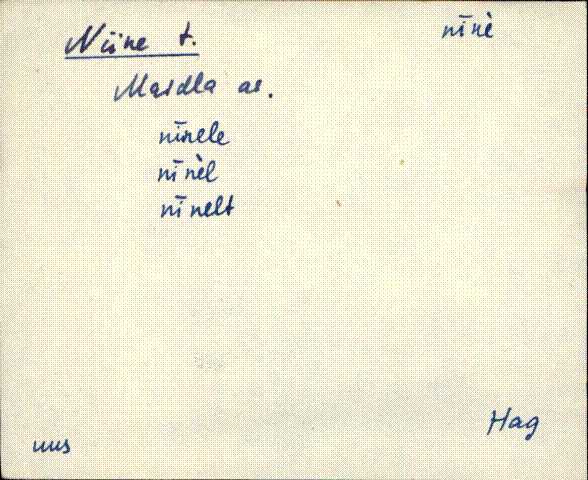 Niine t.
nīnè
Maidla as.
nīnele
nīnèl
nīnelt
Hag
uus